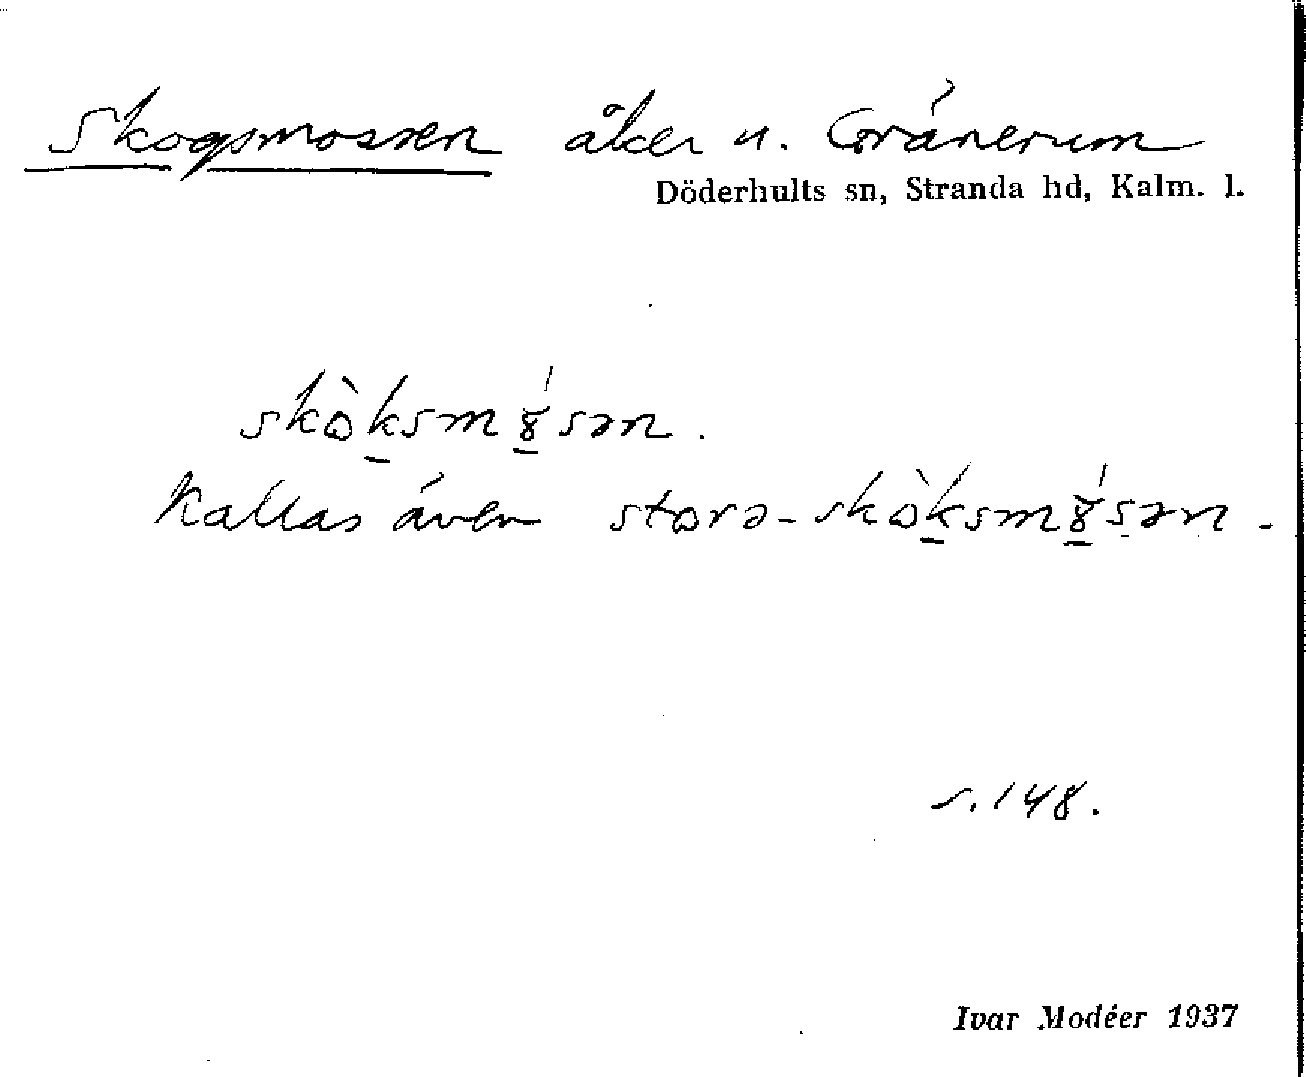 Skogsmossen åker u. Gränerum
Döderhults sn, Stranda hd, Kalm. l.
skòksmȣ́sən.
Kallas även storə-skòksmȣ́sən.
s. 148.
Ivar Modéer 1937